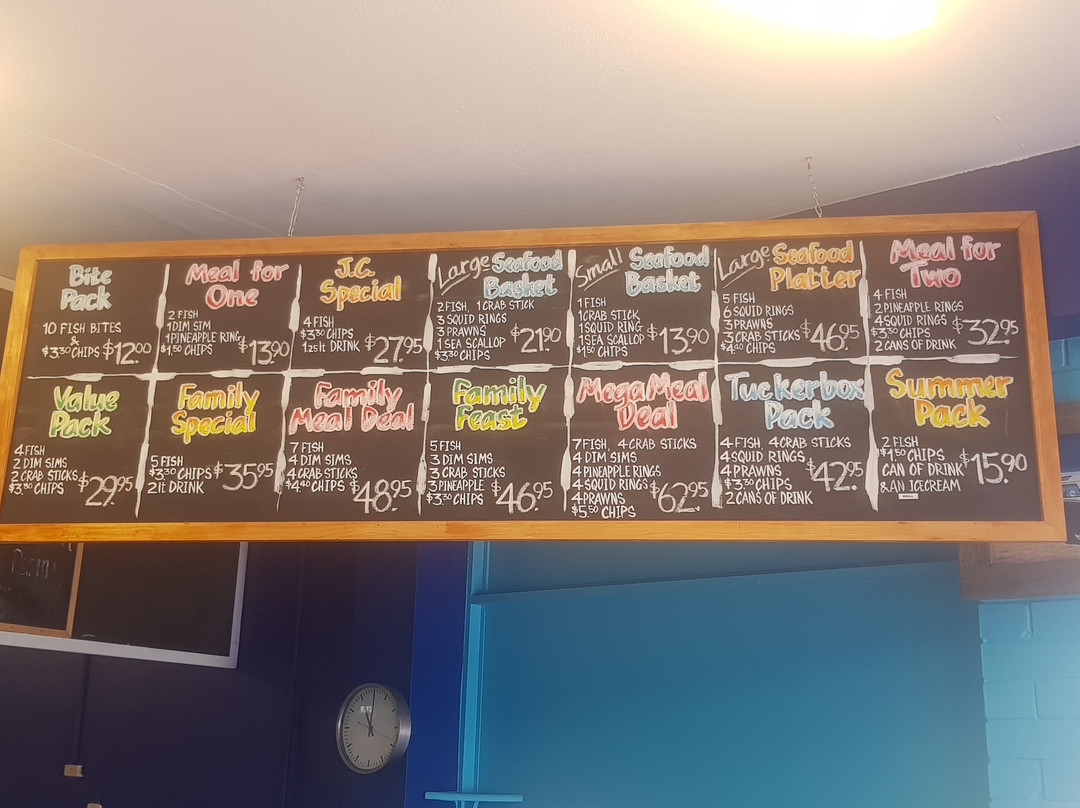 Bite
Pack
10 FISH BITES
&
$3.30 CHIPS $12.00
Meal for
One
2 FISH
1 DIM SIM
1 PINEAPPLE RING
$1.50 CHIPS $13.90
J.C.
Special
4 FISH
$3.30 CHIPS
1.25lt DRINK $27.95
Large Seafood
Basket
2 FISH, 1 CRAB STICK
3 SQUID RINGS
3 PRAWNS
1 SEA SCALLOP
$3.30 CHIPS $21.90
Small Seafood
Basket
1 FISH
1 CRAB STICK
1 SQUID RING
1 SEA SCALLOP
$1.50 CHIPS $13.90
Large Seafood
Platter
5 FISH
6 SQUID RINGS
3 PRAWNS
3 CRAB STICKS
$4.40 CHIPS $46.95
Meal for
Two
4 FISH
2 PINEAPPLE RINGS
4 SQUID RINGS
$3.30 CHIPS
2 CANS OF DRINK $32.95
Value
Pack
4 FISH
2 DIM SIMS
2 CRAB STICKS
$3.30 CHIPS $29.95
Family
Special
5 FISH
$3.30 CHIPS
2lt DRINK $35.95
Family
Meal Deal
7 FISH
4 DIM SIMS
4 CRAB STICKS
$4.40 CHIPS $48.95
Family
Feast
5 FISH
3 DIM SIMS
3 CRAB STICKS
3 PINEAPPLE
$3.30 CHIPS $46.95
Mega Meal
Deal
7 FISH, 4 CRAB STICKS
4 DIM SIMS
4 PINEAPPLE RINGS
4 SQUID RINGS
4 PRAWNS
$5.50 CHIPS $62.95
Tuckerbox
Pack
4 FISH 4 CRAB STICKS
4 SQUID RINGS
4 PRAWNS
$3.30 CHIPS
2 CANS OF DRINK $42.95
Summer
Pack
2 FISH
$1.50 CHIPS
CAN OF DRINK
& AN ICECREAM $15.90